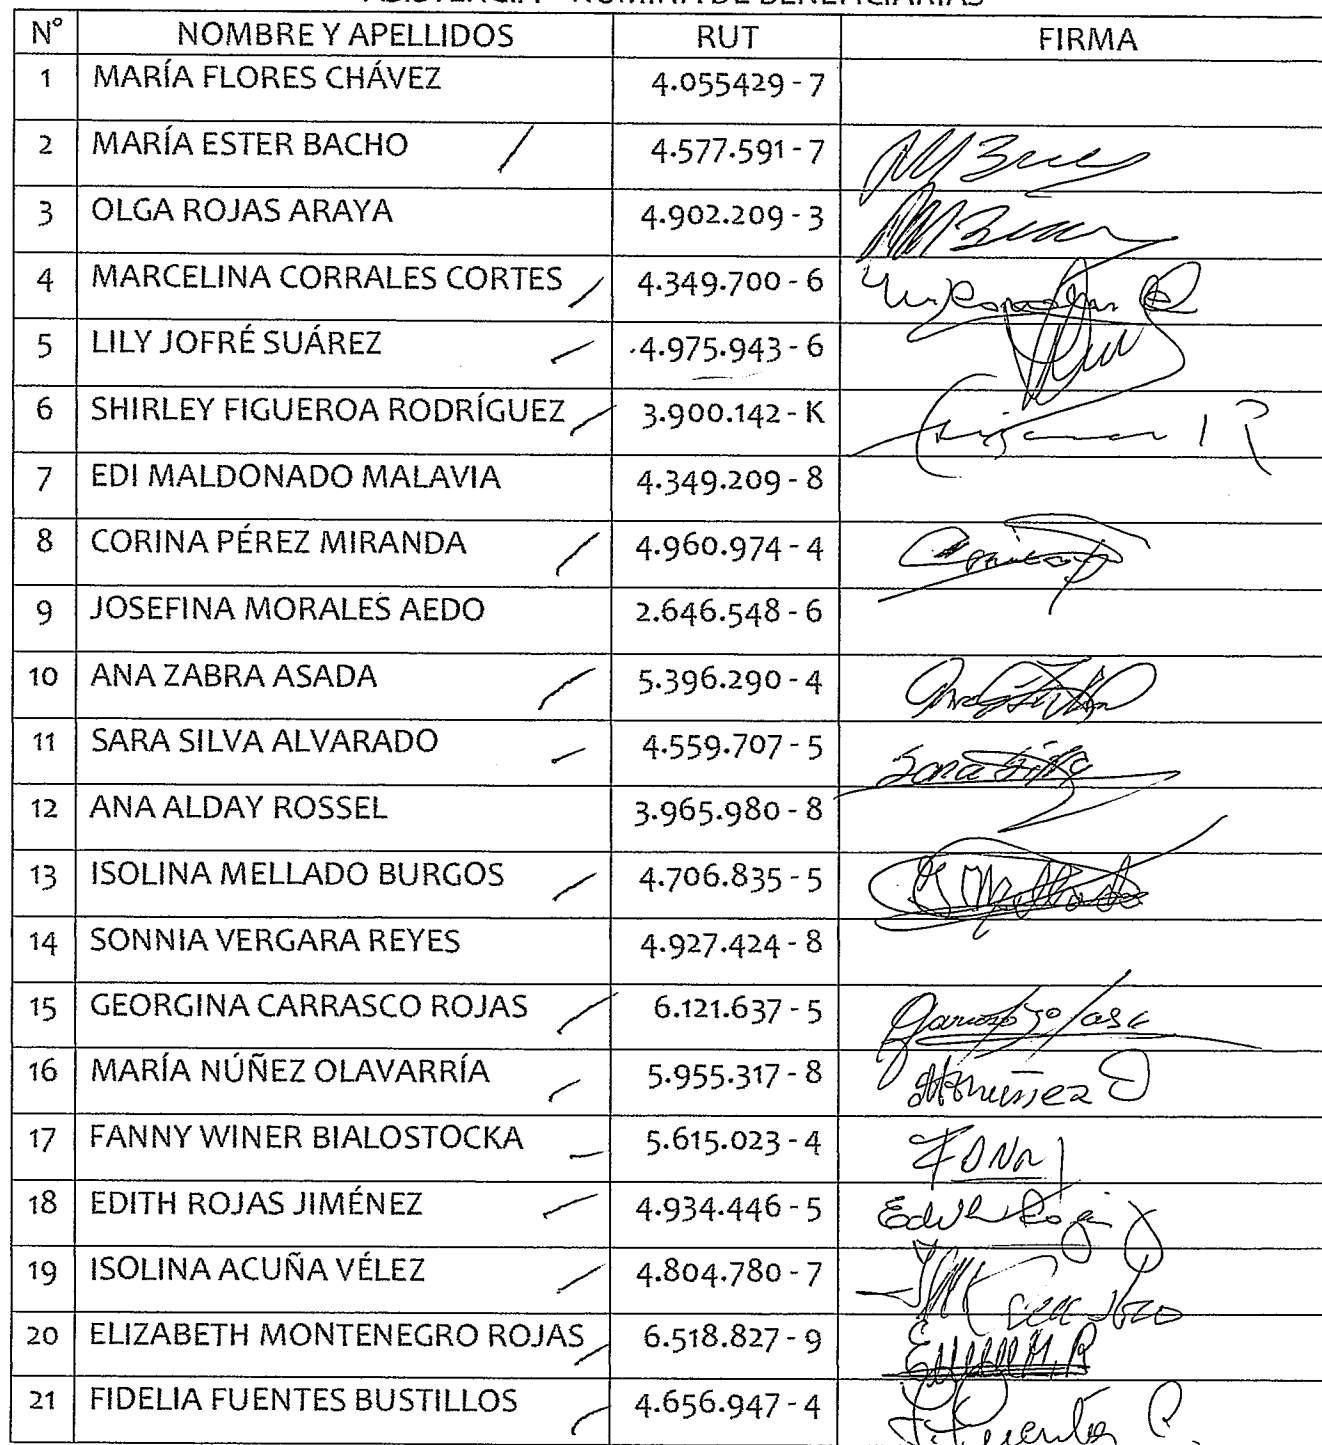 ASISTENCIA - NÓMINA DE BENEFICIARIAS
N° NOMBRE Y APELLIDOS RUT FIRMA
1 MARÍA FLORES CHÁVEZ 4.055429 - 7
2 MARÍA ESTER BACHO 4.577.591 - 7
3 OLGA ROJAS ARAYA 4.902.209 - 3
4 MARCELINA CORRALES CORTES 4.349.700 - 6
5 LILY JOFRÉ SUÁREZ 4.975.943 - 6
6 SHIRLEY FIGUEROA RODRÍGUEZ 3.900.142 - K
7 EDI MALDONADO MALAVIA 4.349.209 - 8
8 CORINA PÉREZ MIRANDA 4.960.974 - 4
9 JOSEFINA MORALES AEDO 2.646.548 - 6
10 ANA ZABRA ASADA 5.396.290 - 4
11 SARA SILVA ALVARADO 4.559.707 - 5 Sara Silva
12 ANA ALDAY ROSSEL 3.965.980 - 8
13 ISOLINA MELLADO BURGOS 4.706.835 - 5
14 SONNIA VERGARA REYES 4.927.424 - 8
15 GEORGINA CARRASCO ROJAS 6.121.637 - 5
16 MARÍA NÚÑEZ OLAVARRÍA 5.955.317 - 8
17 FANNY WINER BIALOSTOCKA 5.615.023 - 4
18 EDITH ROJAS JIMÉNEZ 4.934.446 - 5 Edith Rojas J
19 ISOLINA ACUÑA VÉLEZ 4.804.780 - 7
20 ELIZABETH MONTENEGRO ROJAS 6.518.827 - 9
21 FIDELIA FUENTES BUSTILLOS 4.656.947 - 4